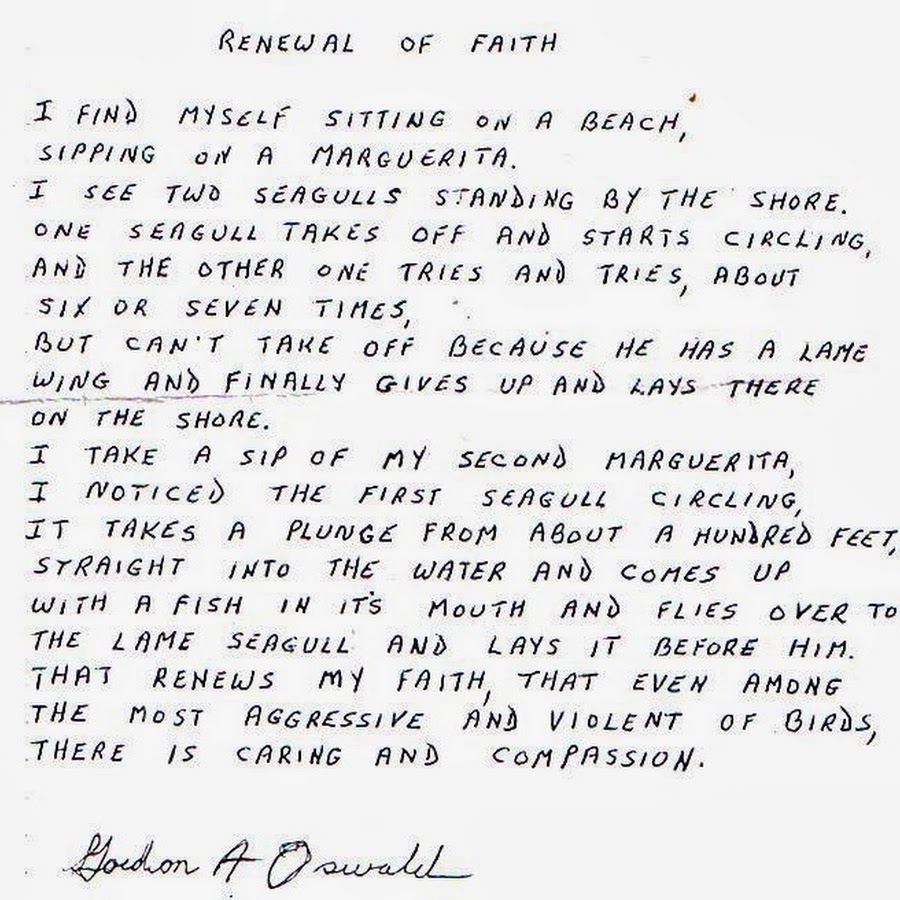 RENEWAL OF FAITH
I FIND MYSELF SITTING ON A BEACH,
SIPPING ON A MARGUERITA.
I SEE TWO SEAGULLS STANDING BY THE SHORE.
ONE SEAGULL TAKES OFF AND STARTS CIRCLING,
AND THE OTHER ONE TRIES AND TRIES, ABOUT
SIX OR SEVEN TIMES,
BUT CAN'T TAKE OFF BECAUSE HE HAS A LAME
WING AND FINALLY GIVES UP AND LAYS THERE
ON THE SHORE.
I TAKE A SIP OF MY SECOND MARGUERITA,
I NOTICED THE FIRST SEAGULL CIRCLING,
IT TAKES A PLUNGE FROM ABOUT A HUNDRED FEET,
STRAIGHT INTO THE WATER AND COMES UP
WITH A FISH IN IT'S MOUTH AND FLIES OVER TO
THE LAME SEAGULL AND LAYS IT BEFORE HIM.
THAT RENEWS MY FAITH, THAT EVEN AMONG
THE MOST AGGRESSIVE AND VIOLENT OF BIRDS,
THERE IS CARING AND COMPASSION.
Gordon A Oswald